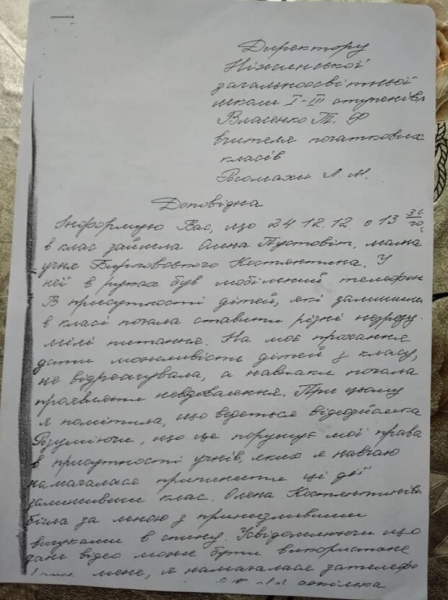 Директору
Ніжинської
загальноосвітньої
школи І-ІІІ ступенів
Власенко Т. Ф
вчителя початкових
класів
Л. М.
Доповідна
Інформую Вас, що 24.12.12 о 13
в клас зайшла Олена Пустовіт, мама
учня Костянтина. У
неї в руках був мобільний телефон
В присутності дітей, які залишили
в класі почала ставити різні незрозу-
мілі питання. На моє прохання
дати можливість дітей з класу,
не відреагувала, а навпаки почала
проявляти невдоволення. При цьому
я помітила, що ведеться відеозйомка
Розуміючи, що це порушує мої права
в присутності учнів, яких я навчаю
намагалася припинити ці дії
залишивши клас. Олена Костянтинівна
бігла за мною з принизливими
вигуками в спину. Усвідомлюючи що
дане відео може бути використане
мене, я намагалася зателефо